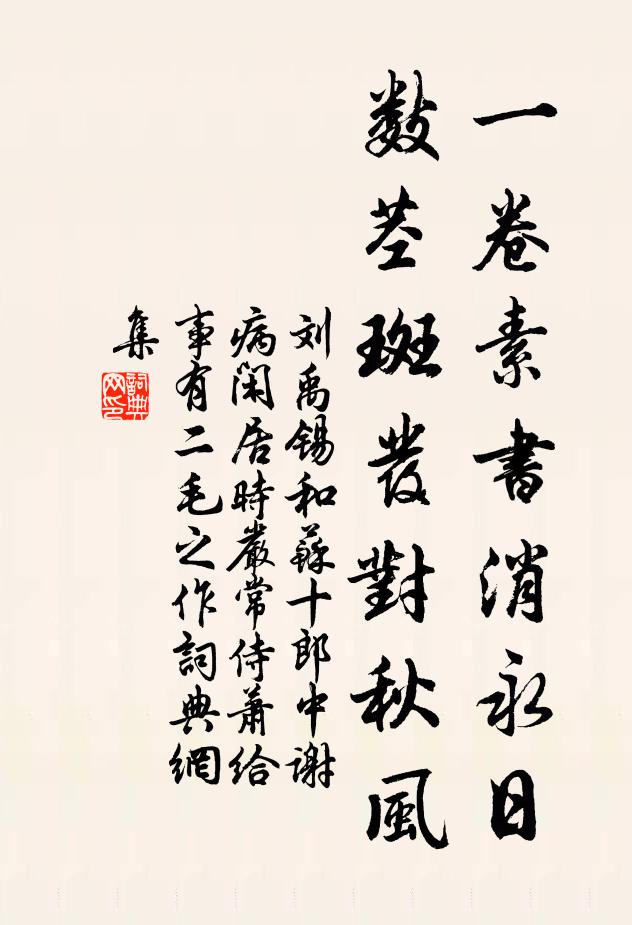 一卷素書消永日
數莖斑發對秋風
刘禹锡和蘇十郎中謝
病闲居時嚴常侍蕭給
事有二毛之作詞典網
集
詞典
网印